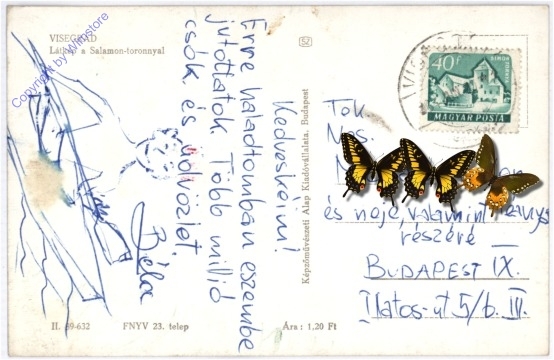 VISEGRÁD
Látkép a Salamon-toronnyal
Copyright by Wnbstore
Kedveskéim!
Erre valadtomban eszembe
jutottatok. Több millió
csók és üdvözlet.
Béla
Képzőművészeti Alap Kiadóvállalata, Budapest
40f
SIMON TORNYA
MAGYAR POSTA
Tek
Nos.
és neje, valamint
részére
BUDAPEST IX.
Illatos-út 5/b. III.
II. 89-632
FNYV 23. telep
Ára: 1,20 Ft